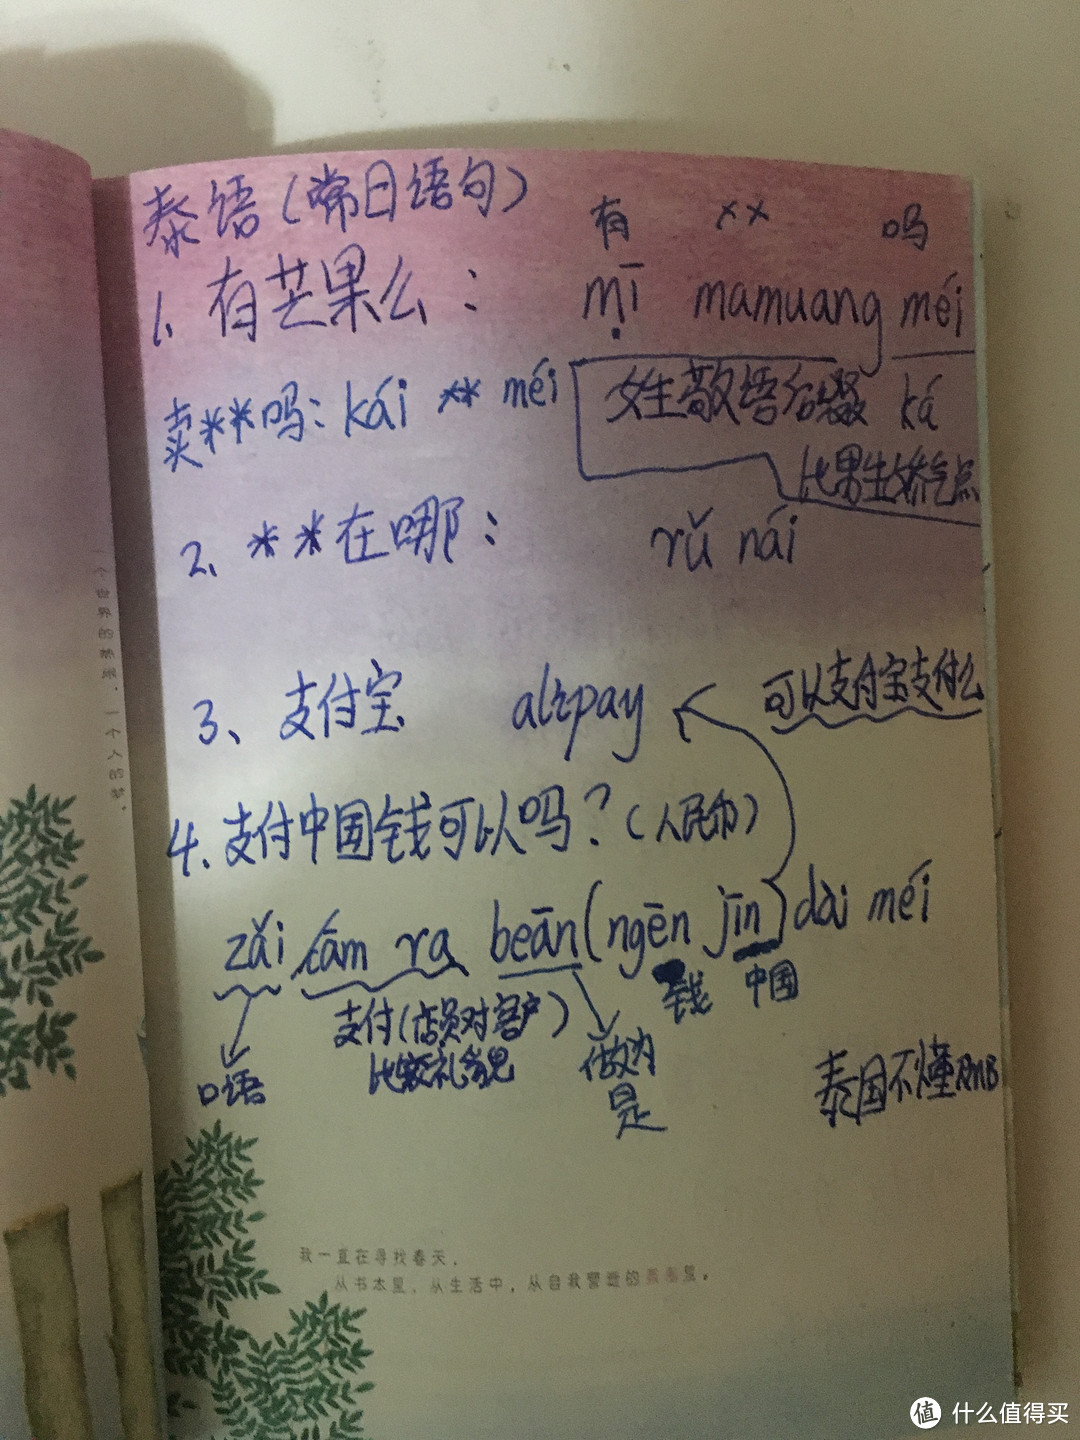 泰语（常日语句）
有 ×× 吗
1. 有芒果么： mī mamuang méi
卖**吗：kái ** méi
女生敬语后缀 ká
比男生娇气点
2、**在哪： yŭ nái
3、支付宝 alipay
可以支付宝支付么
4.支付中国钱可以吗？（人民币）
zăi tám ra beān(ngēn jīn)dài méi
钱 中国
支付（店员对客户）
比较礼貌
口语
做为
是
泰国不懂RMB
我一直在寻找春天，
从书本里，从生活中，从自我警逝的
值 什么值得买